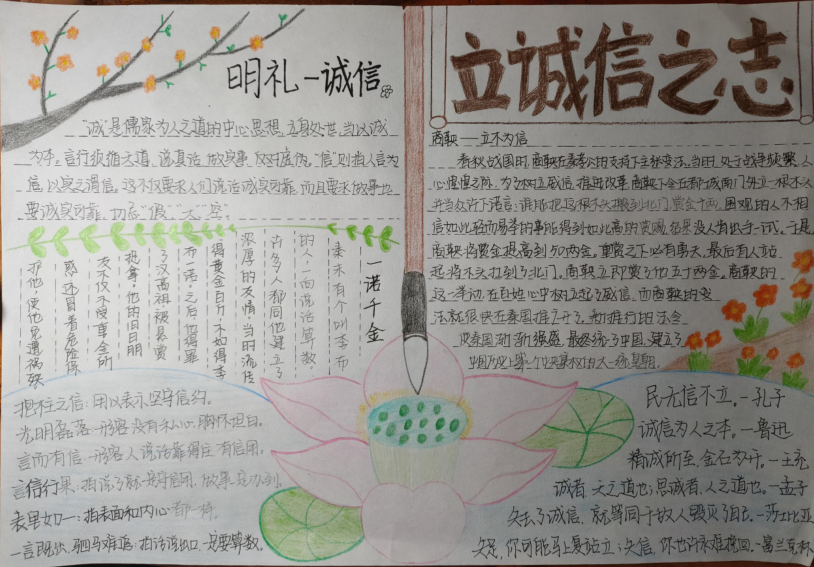 明礼-诚信
"诚"是儒家为人之道的中心思想,立身处世,当以诚
为本。言行须循天道,说真话,做实事,反对虚伪。"信"则指人言为
信,以实之谓信。这不仅要求人们说话诚实可靠,而且要求做事也
要诚实可靠,切忌"假""大""空"
一诺千金
秦末有个叫季布
的人,一向说话算数,
许多人都同他建立了
浓厚的友情当时流传
得黄金百斤,不如得季
布一诺,之后他得罪
了汉高祖被悬赏
捉拿,他的旧日朋
友不仅不受重金所
惑,还冒着危险保
护他,使他免遭祸殃
抱柱之信:用以表示坚守信约。
光明磊落-形容没有私心,胸怀坦白。
言而有信-形容人说话靠得住,有信用。
言信行果:指说了就一定守信用,做事一定办到。
表里如一:指表面和内心都一样。
一言既出,驷马难追:指话说出口,一定要算数。
立诚信之志
商鞅——立木为信
春秋战国时,商鞅在秦孝公的支持下主张变法。当时,处于战争频繁、人
心惶惶之际,为了树立威信,推进改革,商鞅下令在都城南门外立一根木头
并当众许下诺言:谁能把这根木头搬到北门,赏金十两。围观的人不相
信如此轻而易举的事能得到如此高的赏赐,结果没人肯出手一试。于是,
商鞅将赏金提高到50两金。重赏之下必有勇夫,最后有人站
起将木头扛到了北门。商鞅立即赏了他五十两金。商鞅的
这一举动,在百姓心中树立起了威信,而商鞅的变
法就很快在秦国推广开了。新推行的法令
使秦国渐渐强盛,最终统一了中国,建立了
中国历史上第一个中央集权的大一统
民无信不立。-孔子
诚信为人之本。-鲁迅
精诚所至,金石为开。-王充
诚者,天之道也;思诚者,人之道也。-孟子
失去了诚信,就等同于敌人毁灭了自己。-莎士比亚
失足,你可能马上复站立;失信,你也许永难挽回。-富兰克林